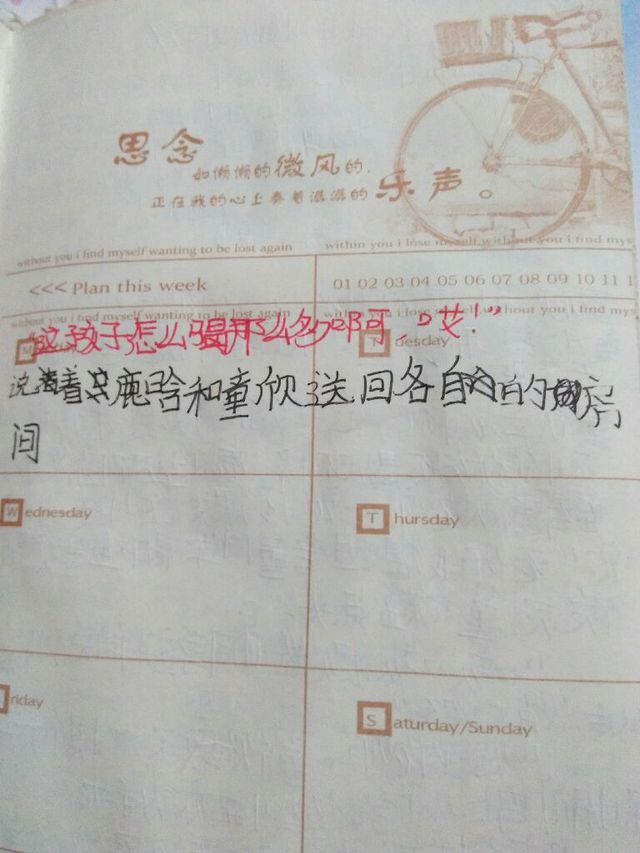 思念
如懒懒的微风的，
正在我的心上奏着潺潺的乐声。
without you i find myself wanting to be lost again
within you i lose myself, without you i find mys
<<< Plan this week
01 02 03 04 05 06 07 08 09 10 11 1
without you i find myself wanting to be lost again
within you i lose myself, without you i find mys
“这孩子怎么喝那么多啊，哎！”
uesday
说着将鹿晗和童欣送回各自的房
间
Wednesday
Thursday
riday
Saturday/Sunday